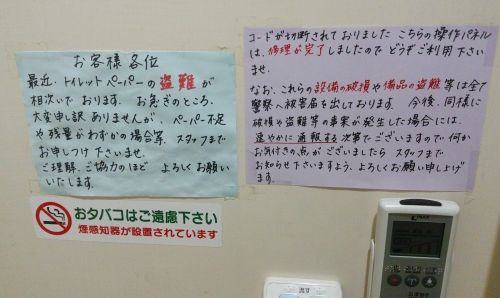 お客様各位
最近、トイレットペーパーの盗難が
相次いでおります。お急ぎのところ、
大変申訳ありませんが、ペーパー不足
や残量がわずかの場合等、スタッフまで
お申しつけ下さいませ。
ご理解、ご協力のほど よろしくお願い
いたします。
おタバコはご遠慮下さい
煙感知器が設置されています
コードが切断されておりました こちらの操作パネル
は、修理が完了しましたので どうぞご利用下さい
ませ。
なお、これらの設備の破損や備品の盗難等は全て
警察へ被害届を出しております。今後、同様に
破損や盗難等の事実が発生した場合には、
速やかに通報する次第でございますので何か
お気付きの点がございましたら スタッフまで
お知らせ下さいますよう、よろしくお願い申し上げ
ます。
流す